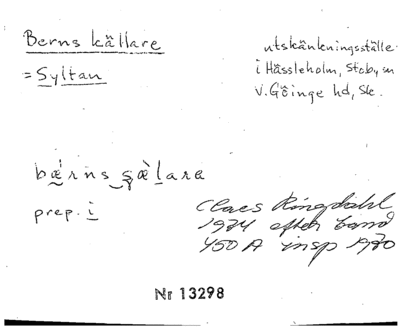 Berns källare
= Syltan
utskänkningsställe
i Hässleholm, Stcby, sn
V. Göinge hd, Sk.
bæ̀rns ɕæ̀lara
prep. i
Claes Ringdahl
1974 efter band
450 A insp 1970
Nr 13298